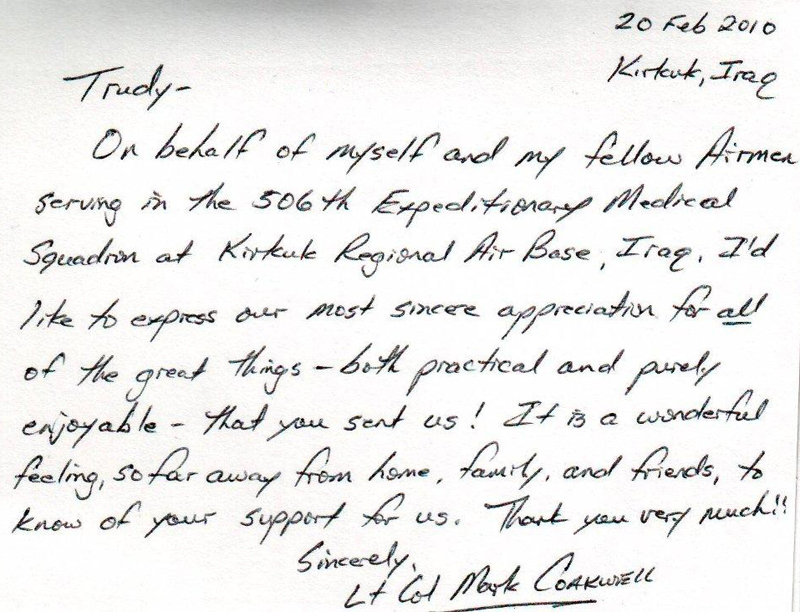 20 Feb 2010
Kirkuk, Iraq
Trudy-
On behalf of myself and my fellow Airmen
serving in the 506th Expeditionary Medical
Squadron at Kirkuk Regional Air Base, Iraq, I'd
like to express our most sincere appreciation for all
of the great things - both practical and purely
enjoyable - that you sent us! It is a wonderful
feeling, so far away from home, family, and friends, to
know of your support for us. Thank you very much!!
Sincerely,
Lt Col Mark Coakwell